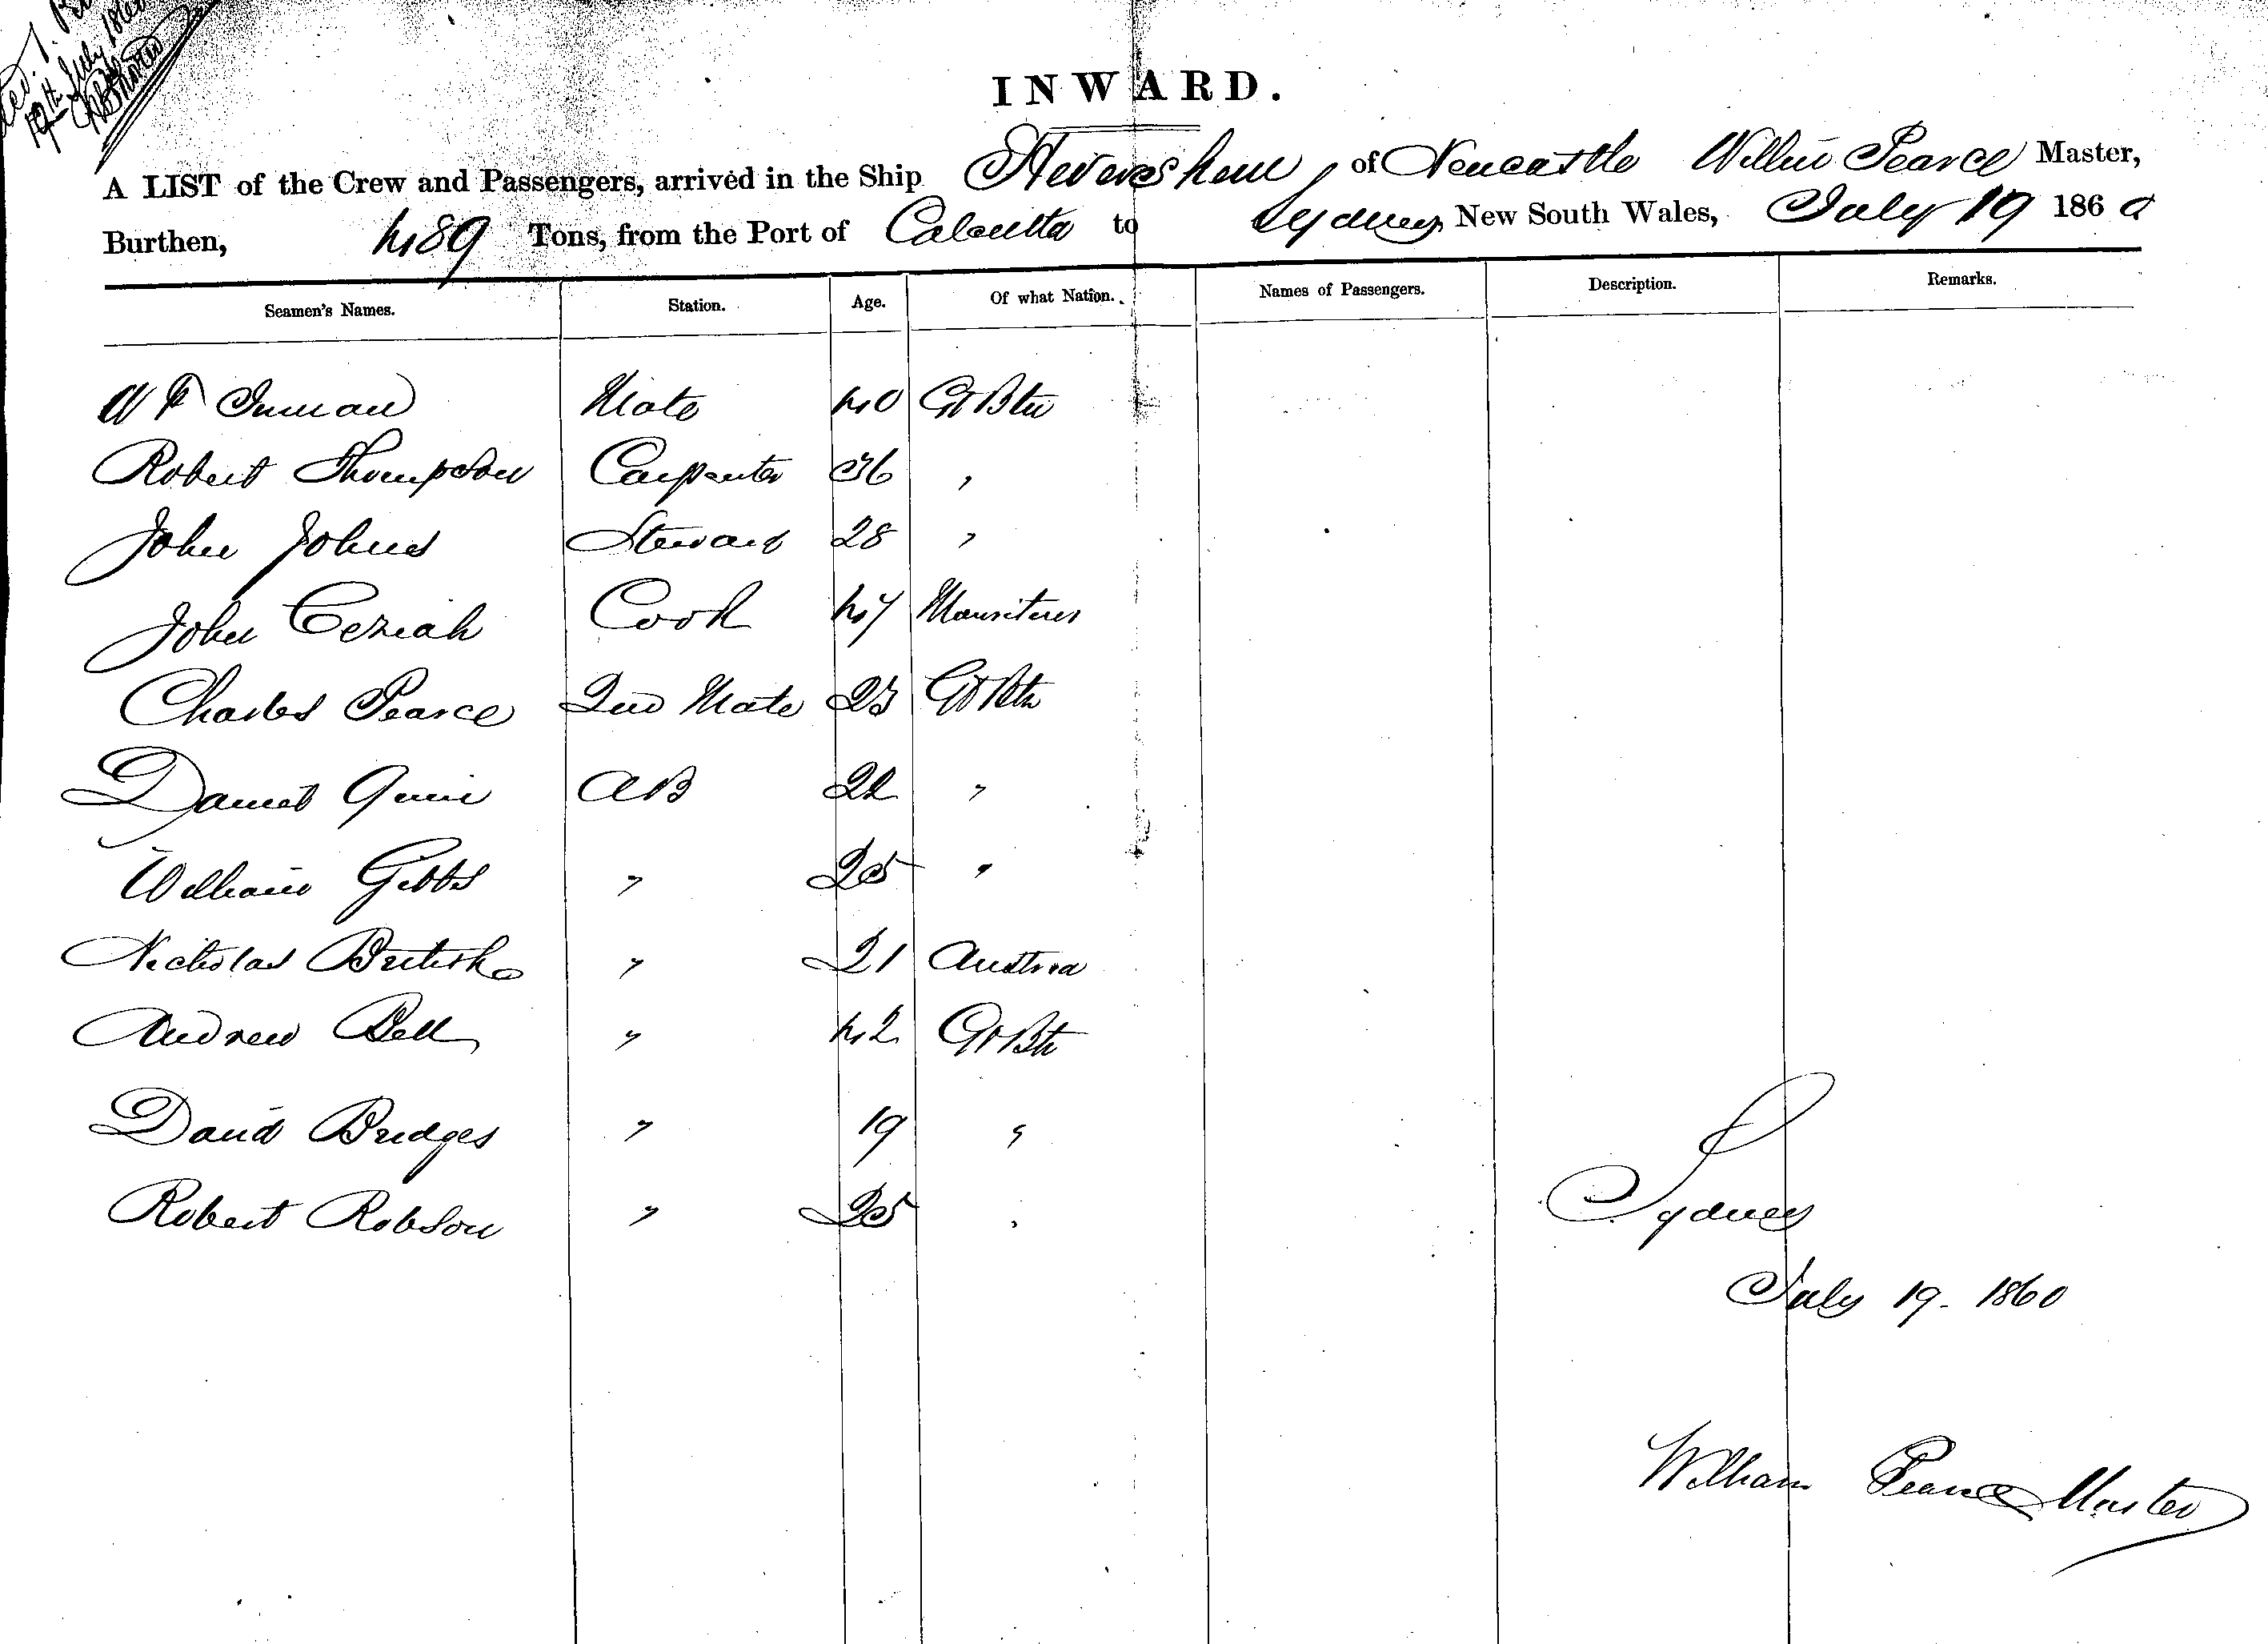 19th July 1860
INWARD.
A LIST of the Crew and Passengers, arrived in the Ship Heversham of Newcastle Willm Pearce Master,
Burthen, 489 Tons, from the Port of Calcutta to Sydney New South Wales, July 19 1860
Seamen's Names. Station. Age. Of what Nation. Names of Passengers. Description. Remarks.
W F Inman Mate 40 Gt Btn
Robert Thompson Carpenter 36 "
John Johns Steward 28 "
John Ceziah Cook 47 Mauritius
Charles Pearce 2nd Mate 23 Gt Btn
Daniel Quin AB 22 "
William Gibbs " 25 "
Nicholas British " 21 Austria
Andrew Bell " 42 Gt Btn
David Bridges " 19 "
Robert Robson " 25 "
Sydney
July 19. 1860
William Pearce Master